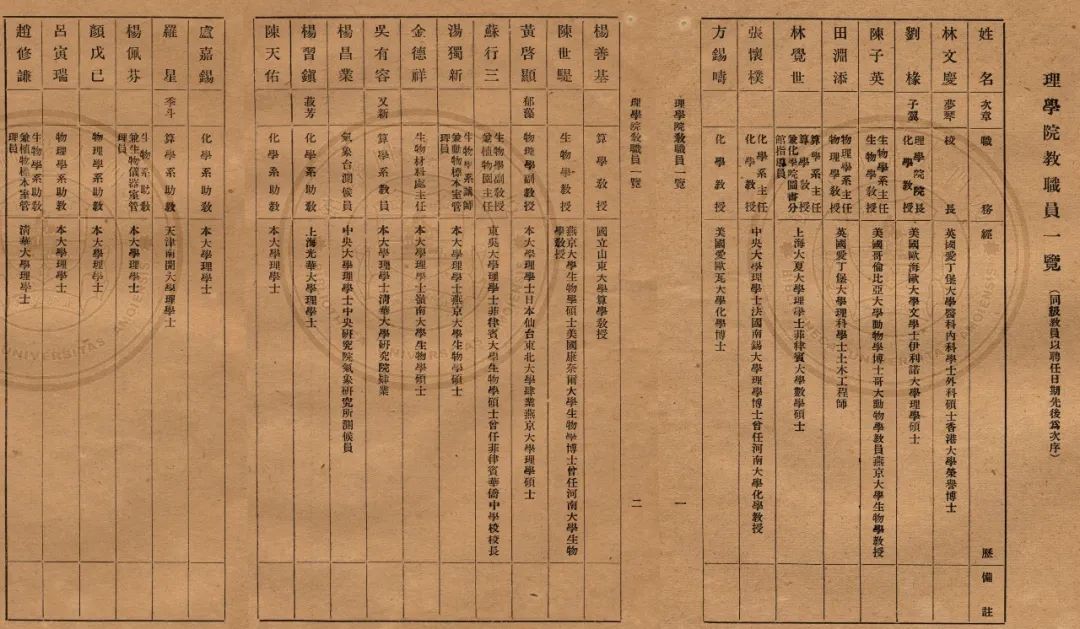 理學院教職員一覽（同級教員以聘任日期先後爲次序）
姓名 次章 職務 經歷 備註
林文慶 夢琴 校長 英國愛丁堡大學醫科內科學士外科碩士香港大學榮譽博士
劉椽 子翼 理學院院長化學教授 美國歐海歐大學文學士伊利諾大學理學碩士
陳子英 生物學系主任生物學教授 美國哥倫比亞大學動物學博士哥大動物學教員燕京大學生物學教授
田淵添 物理學系主任物理學教授 英國愛丁堡大學理科學士土木工程師
林覺世 算學系主任算學教授兼化學院圖書分館指導員 上海大夏大學理學士菲律賓大學數學碩士
張懷樸 化學系主任化學教授 中央大學理學士法國南錫大學理學博士曾任河南大學化學教授
方錫疇 化學教授 美國愛歐瓦大學化學博士
理學院教職員一覽 一
理學院教職員一覽 二
楊善基 算學教授 國立山東大學算學教授
陳世騉 生物學教授 燕京大學生物學碩士美國康奈爾大學生物學博士曾任河南大學生物學教授
黃啓顯 郁藻 物理學副教授 本大學理學士日本仙台東北大學肄業燕京大學理學碩士
蘇行三 生物學副教授兼植物園主任 東吳大學理學士菲律賓大學生物學碩士曾任菲律賓華僑中學校校長
湯獨新 生物學系講師兼動物標本室管理員 本大學理學士燕京大學生物學碩士
金德祥 生物材料處主任 本大學理學士嶺南大學生物學碩士
吳有容 又新 算學系教員 本大學理學士清華大學研究院肄業
楊昌業 氣象台測候員 中央大學理學士中央研究院氣象研究所測候員
楊習鎭 菽芳 化學系助教 上海光華大學理學士
陳天佑 化學系助教 本大學理學士
盧嘉錫 化學系助教 本大學理學士
羅星 季斗 算學系助教 天津南開大學理學士
楊佩芬 生物學系助教兼生物儀器室管理員 本大學理學士
顏戊己 物理學系助教 本大學理學士
呂寅瑞 物理學系助教 本大學理學士
趙修謙 生物學系助教兼植物標本室管理員 清華大學理學士
UNIVERSITAS